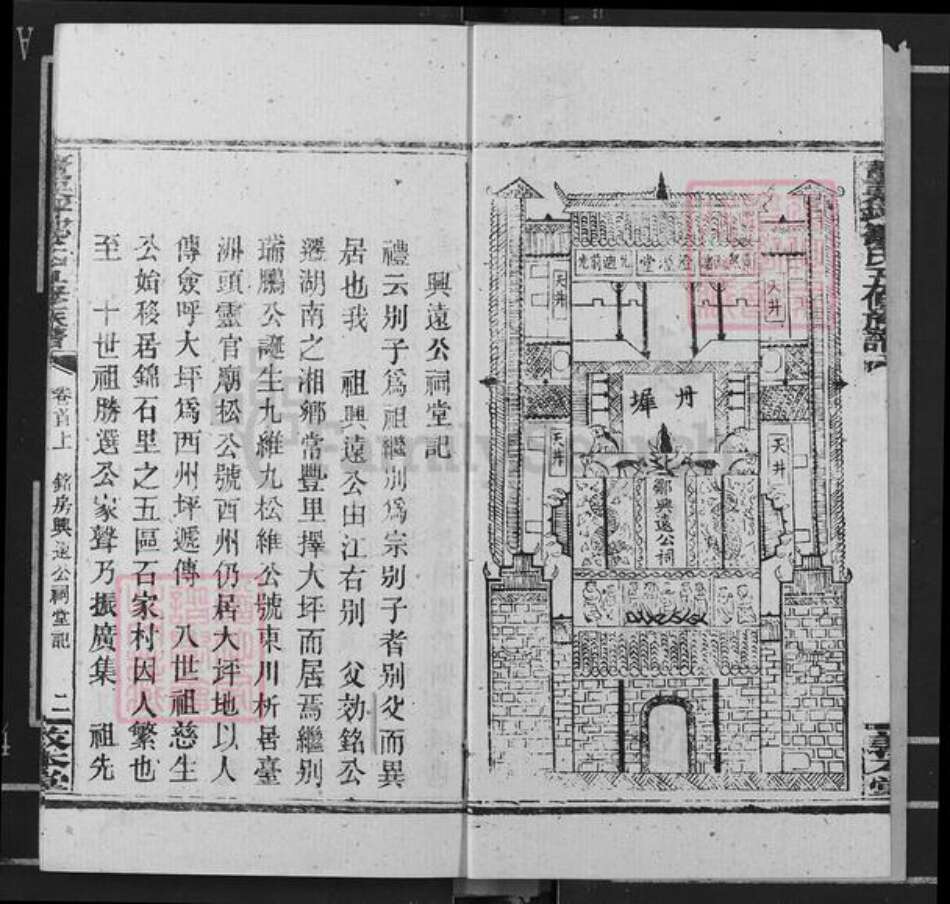 天井
天井
天井
天井
丹墀
鄒興遠公祠
興遠公祠堂記
禮云別子爲祖繼別爲宗別子者別父而異
居也我 祖興遠公由江右別 父効銘公
遷湖南之湘鄉常豐里擇大坪而居焉繼別
瑞鵬公誕生九維九松維公號東川析居臺
洲頭靈官廟松公號西州仍居大坪地以人
傳僉呼大坪爲西州坪遞傳 八世祖慈生
公始移居錦石里之五區石家村因人繁也
至 十世祖勝選公家聲乃振廣集 祖先
卷首上 銘房興遠公祠堂記 二